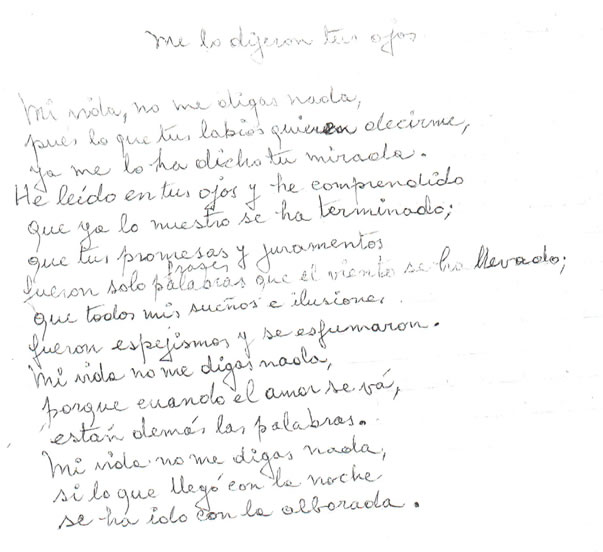 Me lo dijeron tus ojos
Mi vida, no me digas nada,
pues lo que tus labios quieren decirme,
ya me lo ha dicho tu mirada.
He leído en tus ojos y he comprendido
que ya lo nuestro se ha terminado;
que tus promesas y juramentos
frases
fueron solo palabras que el viento se ha llevado;
que todos mis sueños e ilusiones
fueron espejismos y se esfumaron.
Mi vida no me digas nada,
porque cuando el amor se vá,
están demás las palabras.
Mi vida no me digas nada,
si lo que llegó con la noche
se ha ido con la alborada.